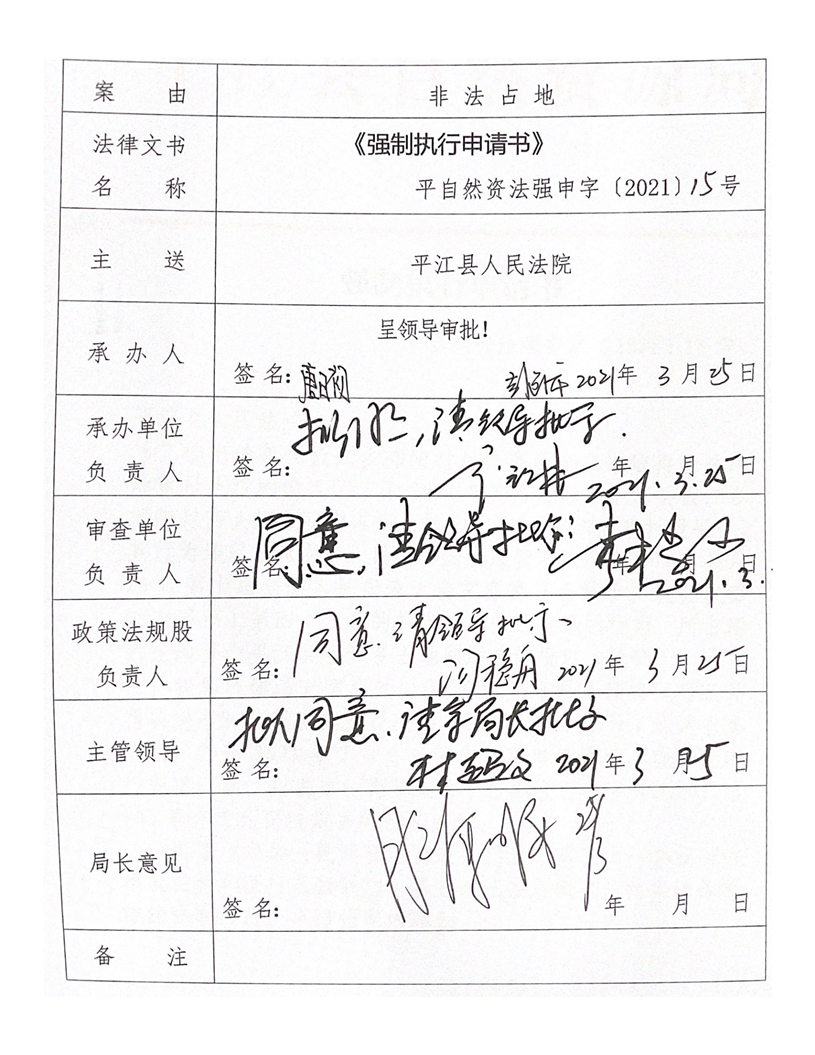 案 由
非法占地
法律文书
名 称
《强制执行申请书》
平自然资法强申字〔2021〕15号
主 送
平江县人民法院
承办人
呈领导审批!
签名: 2021年 3月25日
承办单位
负责人
请领导批示.
签名: 年 月 日
2021.3.25
审查单位
负责人
同意,请领导批示!
签名: 年 月 日
2021.3.
政策法规股
负责人
同意.请领导批示、
签名: 2021年 3月25日
主管领导
拟同意、请 局长批
签名: 2021年3月5日
局长意见
签名: 年 月 日
备 注